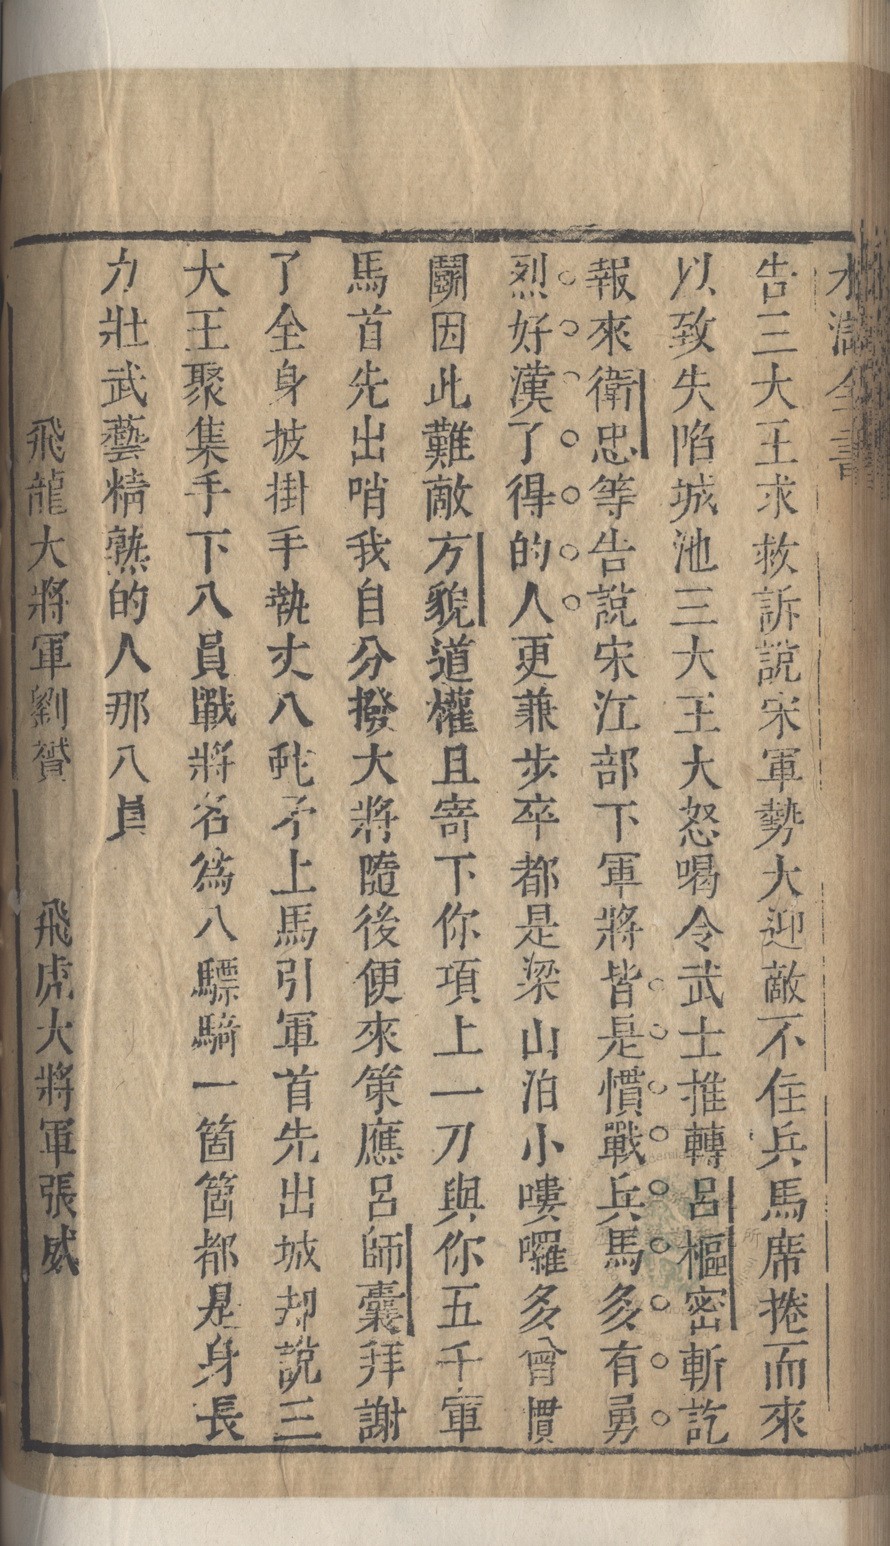 水滸全書
告三大王求救訴說宋軍勢大迎敵不住兵馬席捲而來
以致失陷城池三大王大怒喝令武士推轉呂樞密斬訖
報來衛忠等告說宋江部下軍將皆是慣戰兵馬多有勇
烈好漢了得的人更兼步卒都是梁山泊小嘍囉多曾慣
鬬因此難敵方貌道權且寄下你項上一刀與你五千軍
馬首先出哨我自分撥大將隨後便來策應呂師囊拜謝
了全身披掛手執丈八蛇矛上馬引軍首先出城却說三
大王聚集手下八員戰將名為八驃騎一箇箇都是身長
力壯武藝精熟的人那八員
飛龍大將軍劉贇　飛虎大將軍張威